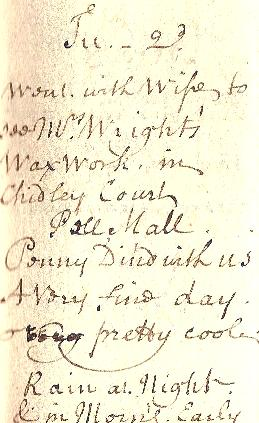 Tu. - 2d.
Went with Wife to
see Mrs. Wright's
Wax Work in
Chidley Court
Pall Mall.
Penny Din'd with us
A Very fine day.
pretty cool
Rain at Night.
& in Morng. Early